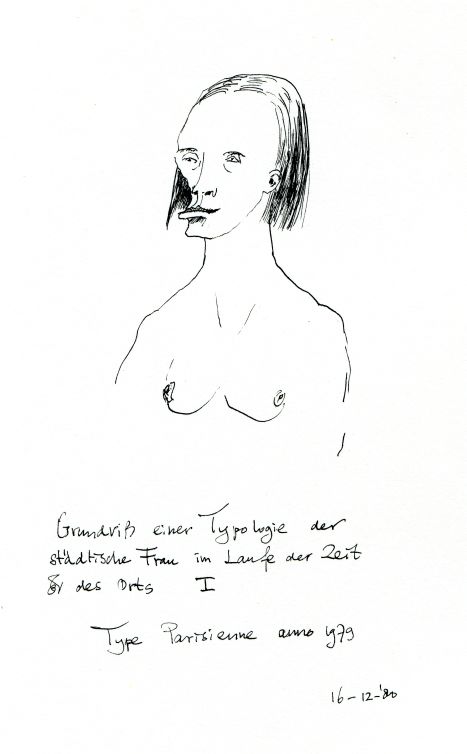 Grundriß einer Typologie der
städtische Frau im Laufe der Zeit
& des Orts I
Type Parisienne anno 1979
16-12-'80